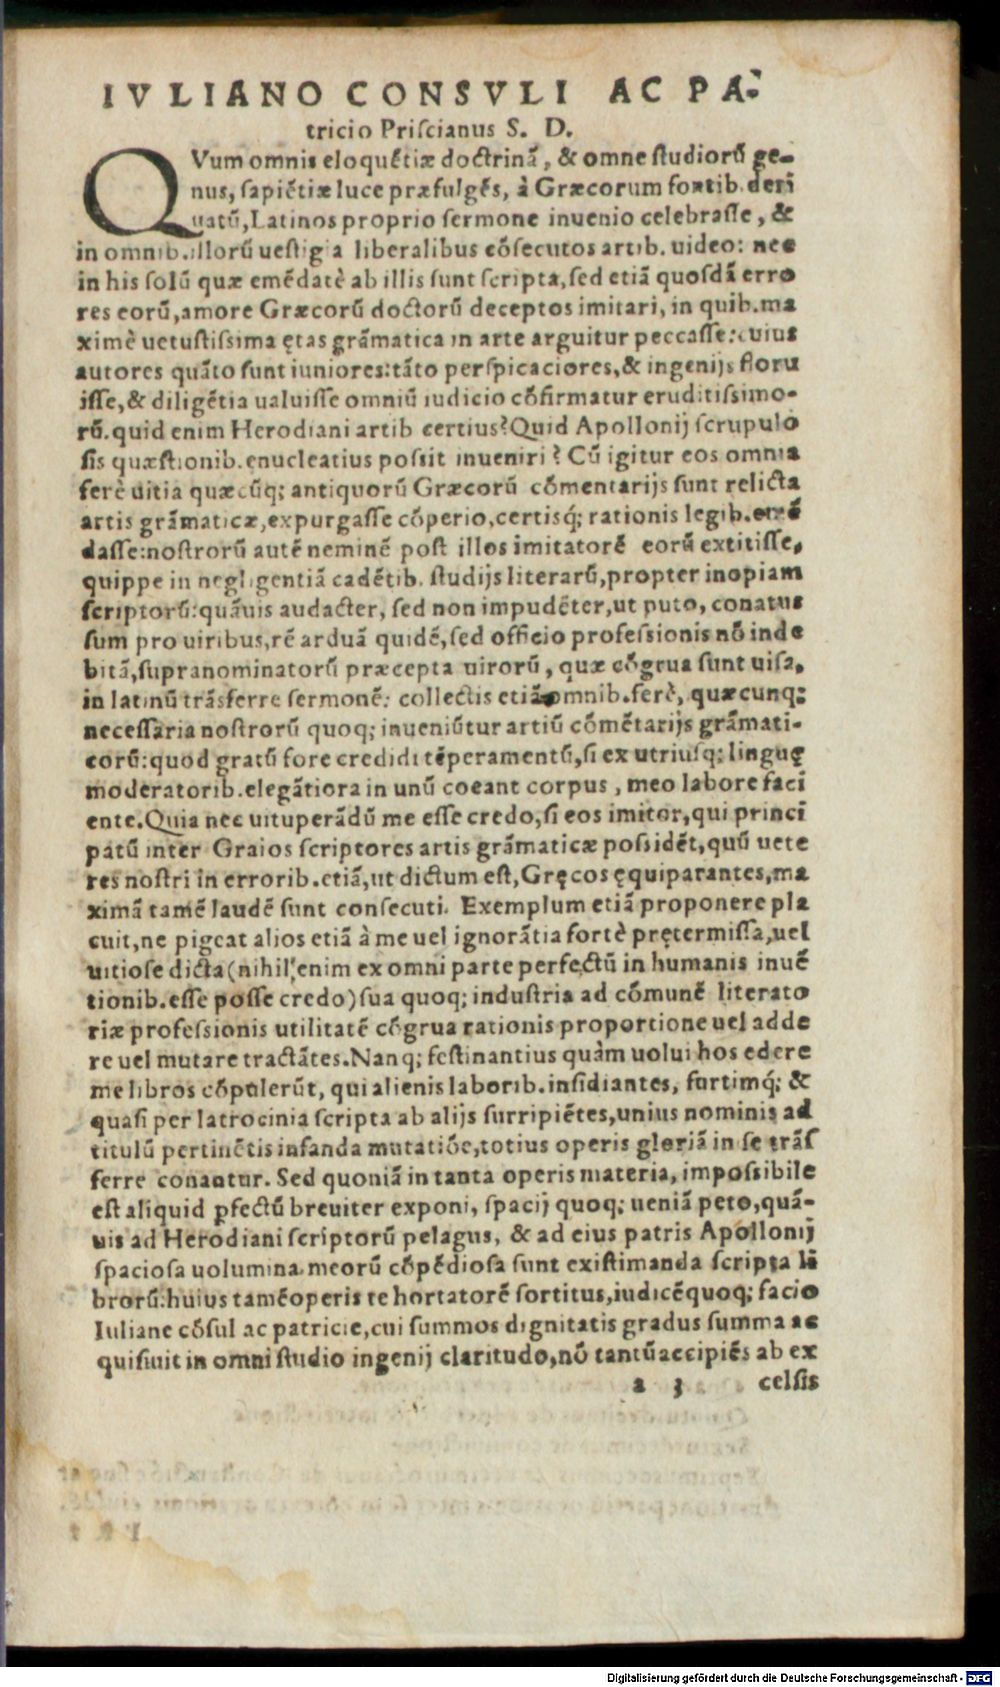 IVLIANO CONSVLI AC PA-
tricio Priſcianus S. D.
QVum omnis eloquẽtiæ doctrinã, & omne ſtudiorũ ge-
nus, ſapiẽtiæ luce præfulgẽs, à Græcorum fontib. deri
uatũ, Latinos proprio ſermone inuenio celebraſſe, &
in omnib. illorũ ueſtigia liberalibus cõſecutos artib. uideo: nec
in his ſolũ quæ emẽdatè ab illis ſunt ſcripta, ſed etiã quoſdã erro
res eorũ, amore Græcorũ doctorũ deceptos imitari, in quib. ma
ximè uetuſtiſsima ętas grãmatica in arte arguitur peccaſſe: cuius
autores quãto ſunt iuniores: tãto perſpicaciores, & ingenijs floru
iſſe, & diligẽtia ualuiſſe omniũ iudicio cõfirmatur eruditiſsimo-
rũ. quid enim Herodiani artib certius? Quid Apollonij ſcrupulo
ſis quæſtionib. enucleatius poſsit inueniri? Cũ igitur eos omnia
ferè uitia quæcũq; antiquorũ Græcorũ cõmentarijs ſunt relicta
artis grãmaticæ, expurgaſſe cõperio, certisq́; rationis legib. emẽ
daſſe: noſtrorũ autẽ neminẽ poſt illos imitatorẽ eorũ extitiſſe,
quippe in negligentiã cadẽtib. ſtudijs literarũ, propter inopiam
ſcriptorũ: quãuis audacter, ſed non impudẽter, ut puto, conatus
ſum pro uiribus, rẽ arduã quidẽ, ſed officio profeſsionis nõ inde
bitã, ſupranominatorũ præcepta uirorũ, quæ cõgrua ſunt uiſa,
in latinũ trãsferre ſermonẽ: collectis etiã omnib. ferè, quæcunq;
neceſſaria noſtrorũ quoq; inueniũtur artiũ cõmẽtarijs grãmati-
corũ: quod gratũ fore credidi tẽperamentũ, ſi ex utriuſq; linguę
moderatorib. elegãtiora in unũ coeant corpus, meo labore faci
ente. Quia nec uituperãdũ me eſſe credo, ſi eos imitor, qui princi
patũ inter Graios ſcriptores artis grãmaticæ poſsidẽt, quũ uete
res noſtri in errorib. etiã, ut dictum eſt, Gręcos ęquiparantes, ma
ximã tamẽ laudẽ ſunt conſecuti. Exemplum etiã proponere pla
cuit, ne pigeat alios etiã à me uel ignorãtia fortè prętermiſſa, uel
uitioſe dicta (nihil enim ex omni parte perfectũ in humanis inuẽ
tionib. eſſe poſſe credo) ſua quoq; induſtria ad cõmunẽ literato
riæ profeſsionis utilitatẽ cõgrua rationis proportione uel adde
re uel mutare tractãtes. Nanq; feſtinantius quàm uolui hos edere
me libros cõpulerũt, qui alienis laborib. inſidiantes, furtimq́; &
quaſi per latrocinia ſcripta ab alijs ſurripiẽtes, unius nominis ad
titulũ pertinẽtis infanda mutatiõe, totius operis gloriã in ſe trãſ
ferre conantur. Sed quoniã in tanta operis materia, impoſsibile
eſt aliquid ꝑfectũ breuiter exponi, ſpacij quoq; ueniã peto, quã-
uis ad Herodiani ſcriptorũ pelagus, & ad eius patris Apollonij
ſpacioſa uolumina meorũ cõpẽdioſa ſunt exiſtimanda ſcripta li
brorũ: huius tamẽ operis te hortatorẽ ſortitus, iudicẽ quoq; facio
Iuliane cõſul ac patricie, cui ſummos dignitatis gradus ſumma ac
quiſiuit in omni ſtudio ingenij claritudo, nõ tantũ accipiẽs ab ex
a 3 celſis
Digitalisierung gefördert durch die Deutsche Forschungsgemeinschaft - DFG